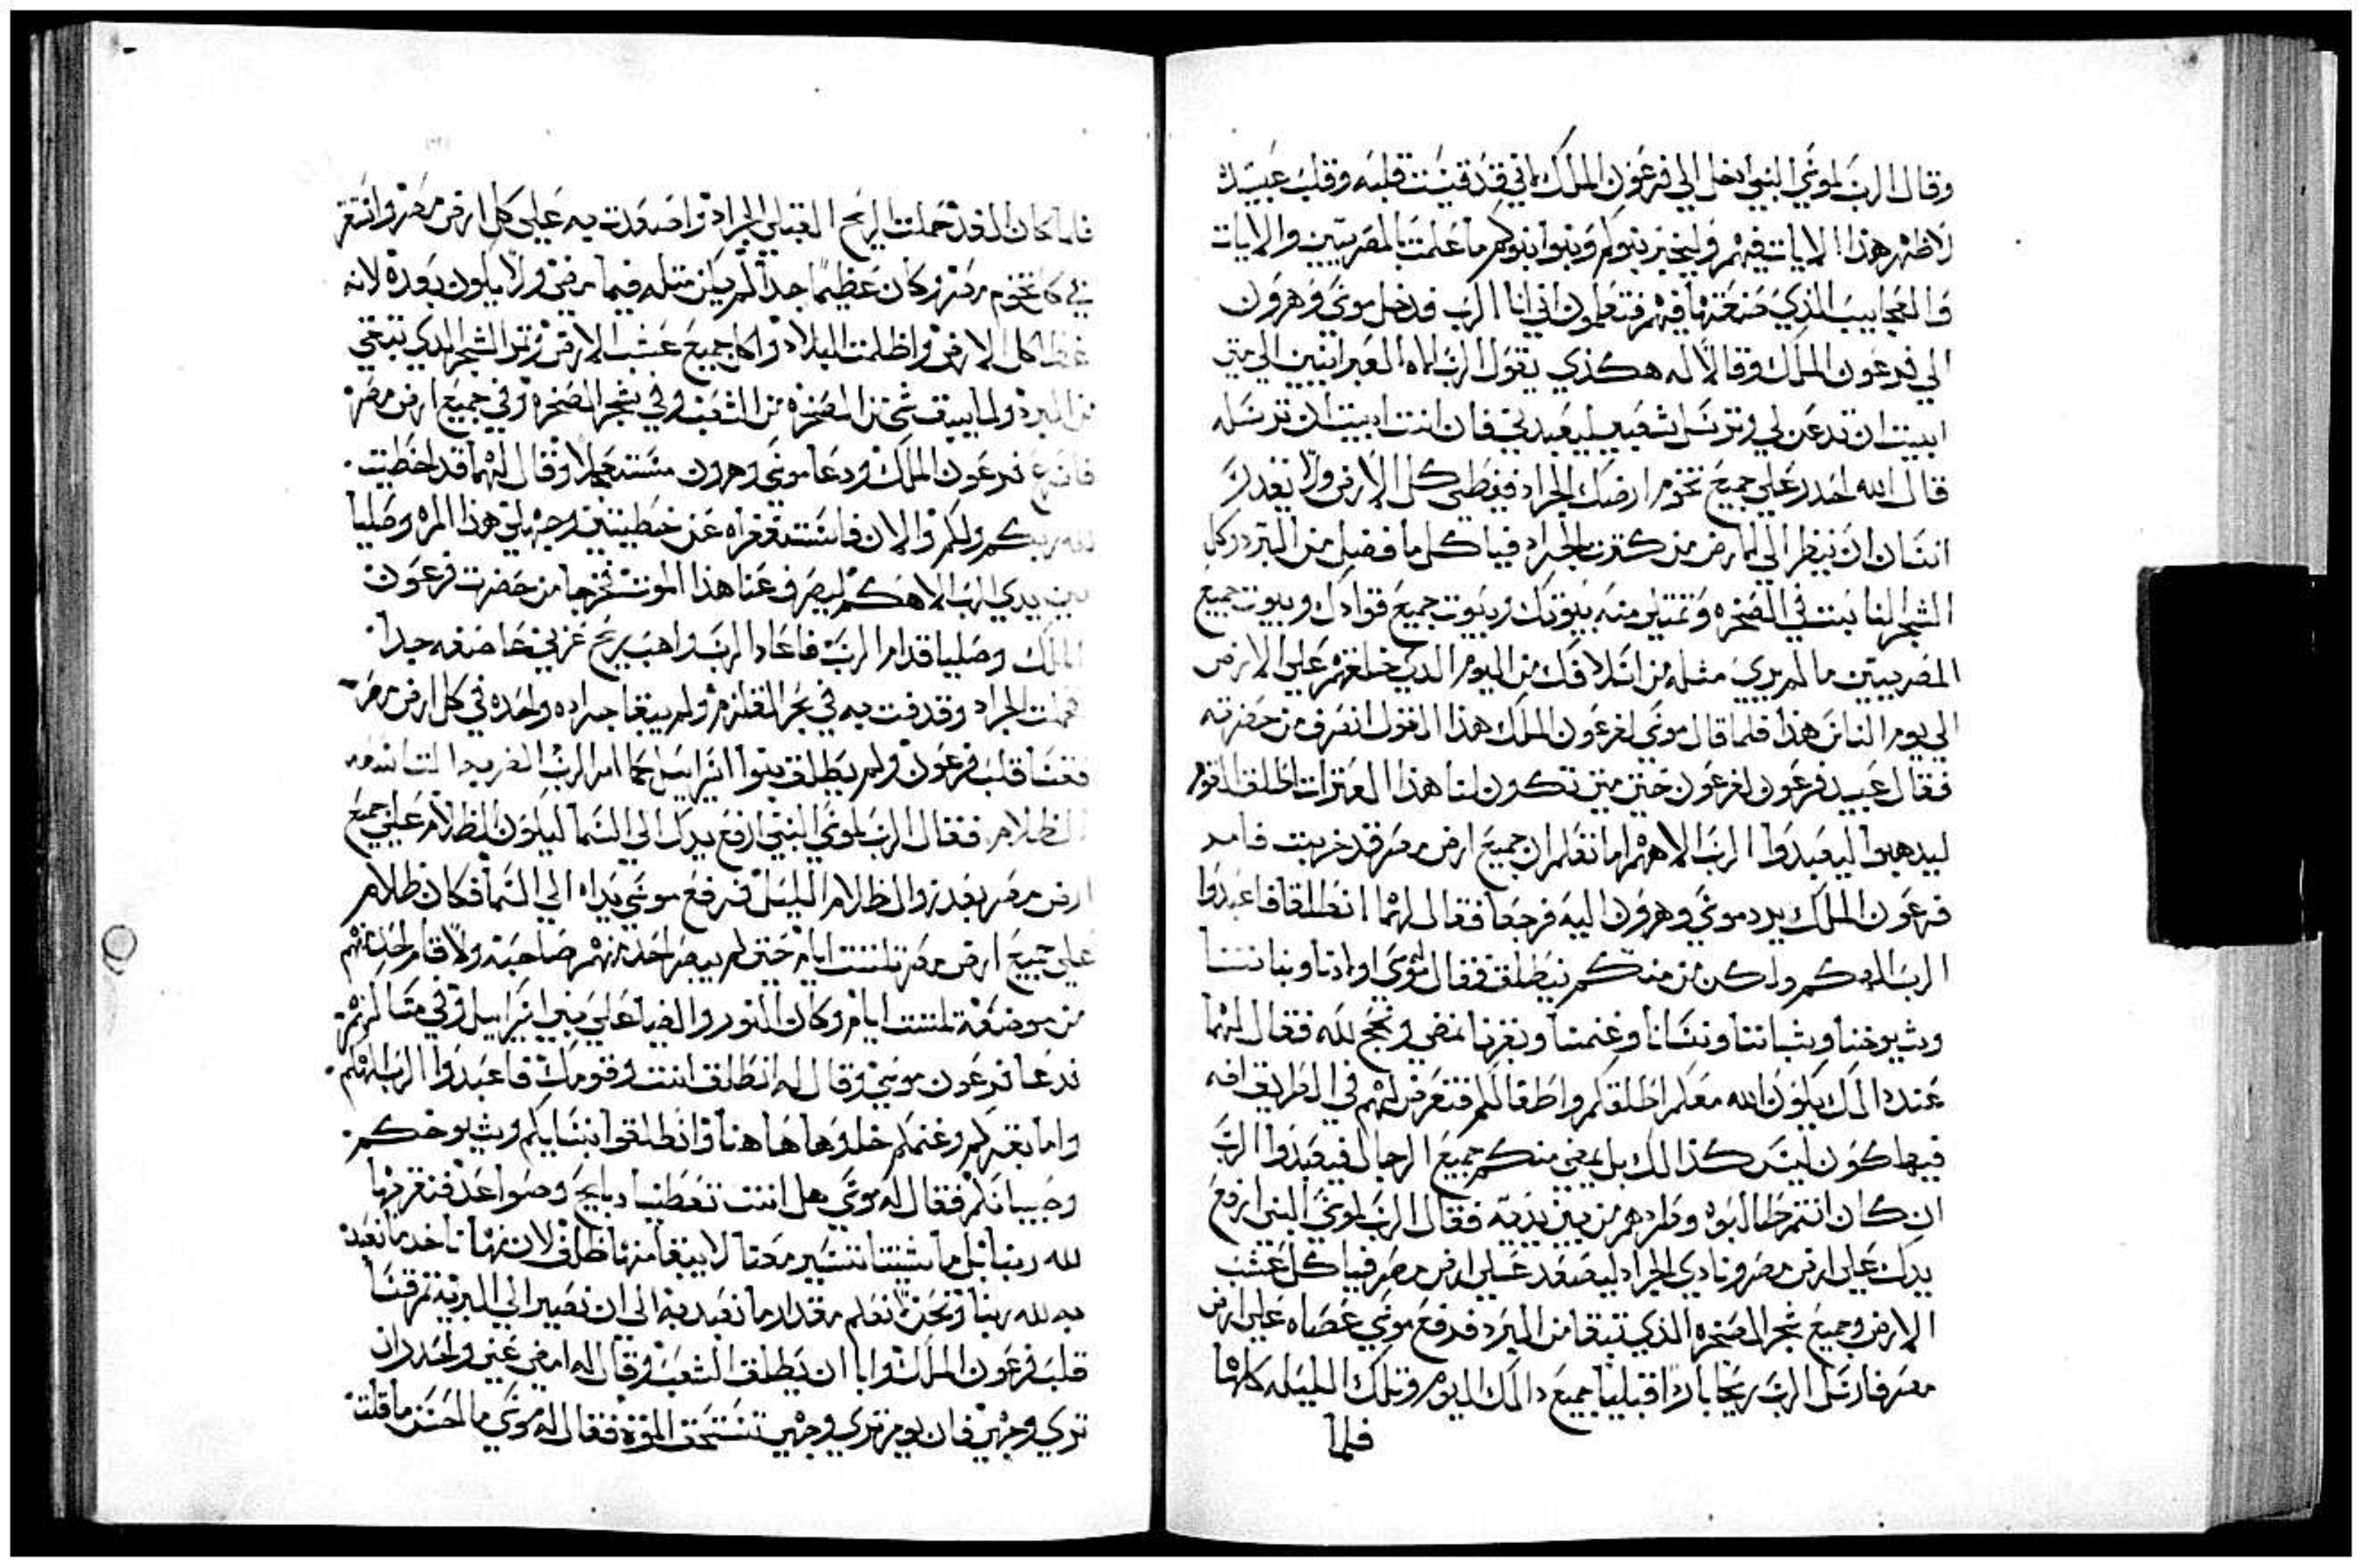 وقال الرب لموسي النبي ادخل الي فرعون الملك اني قد قسيت قلبه وقلب عبيده
لاظهر هذا الايات فيهم وليخبر بنوكم وبنوا بنوكم ما عملت بالمصريين والايات
والعجاييب الذي صنعتها فيهم فتعلمون اني انا الرب فدخل موسي وهرون
الي فرعون الملك وقالا له هكذي يقول الرب اله العبرانيين الي متي
ابيت ان تدعن لي وترسل شعبي ليعبدني فان انت ابيت ان ترسله
قال الله احدر علي جميع تخوم ارضك الجراد فيغطي كل الارض ولا يقدر
انسان ان ينظر الي الارض من كترت الجراد فياكل ما فضل من البرد وكل
الشجر لنا نبت في الصخره وتمتلي منه بيوتك وبيوت جميع قوادك وبيوت جميع
المصريين ما لم يري مثله من اسلافك من اليوم الدي خلفتهم علي الارض
الي يوم الناس هذا فلما قال موسي لفرعون الملك هذا القول انصرف من حضرته
فقال عبيد فرعون لفرعون حتي متي تكون لنا هذا العترات اطلق القوم
ليدهبوا ليعبدوا الرب الاههم اما تعلم ان جميع ارض مصر قد خربت فامر
فرعون الملك برد موسي وهرون اليه فرجعا فقال لهما انطلقا فاعبدوا
الرب الهكم ولكن من منكم ينطلق فقال موسي اولادنا وبناتنا
وشيوخنا وشباننا ونسانا وغنمنا وبقرنا نمضي ونحج لله فقال لهما
عند دالك يكون الله معكم اطلقكم واطفالكم فتعرض لهم في الطريق افه
فيها كون ليس كذالك بل يمضي منكم جميع الرجال فيعبدوا الرب
ان كان انتم طالبوه وطردهم من بين يديه فقال الرب لموسي النبي ارفع
يدك علي ارض مصر ونادي الجراد ليصعد علي ارض مصر فياكل عشب
الارض وجميع شجر الصخره الذي تبقا من البرد فرفع موسي عصاه علي ارض
مصر فارسل الرب ريحا بارا قبليا جميع دالك اليوم وتلك الليله كلها
فلما
فلما كان الغد حملت الريح القبلي الجراد واصعدت به علي كل ارض مصر وانتقر
في كل تخوم مصر وكان عظيما جدا لم يكن مثله فيما مضي ولا يكون بعده لانه
غطا كل الارض واظلمت البلاد واكل جميع عشب الارض وتمر الشجر الدي تبقي
من البرد ولما يبق شي من الصخره من الشعب وفي شجر الصخره وفي جميع ارض مصر
فاسرع فرعون الملك ودعا موسي وهرون مستعجلا وقال لهما قد اخطيت
لله ربكم ولكم والان فاستغفراه عن خطيتي وجهلي هذا المره وصليا
بين يدي الرب الاهكم ليصرف عنا هذا الموت فخرجا من حضرت فرعون
الملك وصليا قدام الرب فاعاد الرب واهب ريح غربي عاصفه جدا
فحملت الجراد وقدفت به في بحر القلزم ولم يبقا جراده واحده في كل ارض مصر
فقسا قلب فرعون ولم يطلق بنوا اسراييل كما امر الرب الضربه التاسعه
الظلام فقال الرب لموسي النبي ارفع يدك الي السما ليكون الظلام علي جميع
ارض مصر بعد زوال ظلام الليل فرفع موسي يداه الي السما فكان ظلام
علي جميع ارض مصر تلتت ايام حتي لم يبصر احد منهم صاحبه ولا قام احد منهم
من موضعه تلتت ايام وكان النور والضيا علي بني اسراييل وفي مساكنهم
فدعا فرعون موسي وقال له انطلق انت وقومك فاعبدوا الرب الهكم
واما بقركم وغنمكم خلوها هاهنا وانطلقوا بنسايكم وشيوخكم
وصبيانكم فقال له موسي هل انت تعطينا دبايح وصواعد فنقربها
لله ربنا بل ماشيتنا تسير معنا لا يبقا منها ظلف لان منها ناخد ما نعبد
به لله ربنا ونحن لا نعلم مقدار ما نعبد به الي ان نصير الي البريه ثم قسا
قلب فرعون الملك وابا ان يطلق الشعب وقال له امضي عني واحدر ان
تري وجهي فان يوم تري وجهي تستحق الموت فقال له موسي ما احسن ما قلت